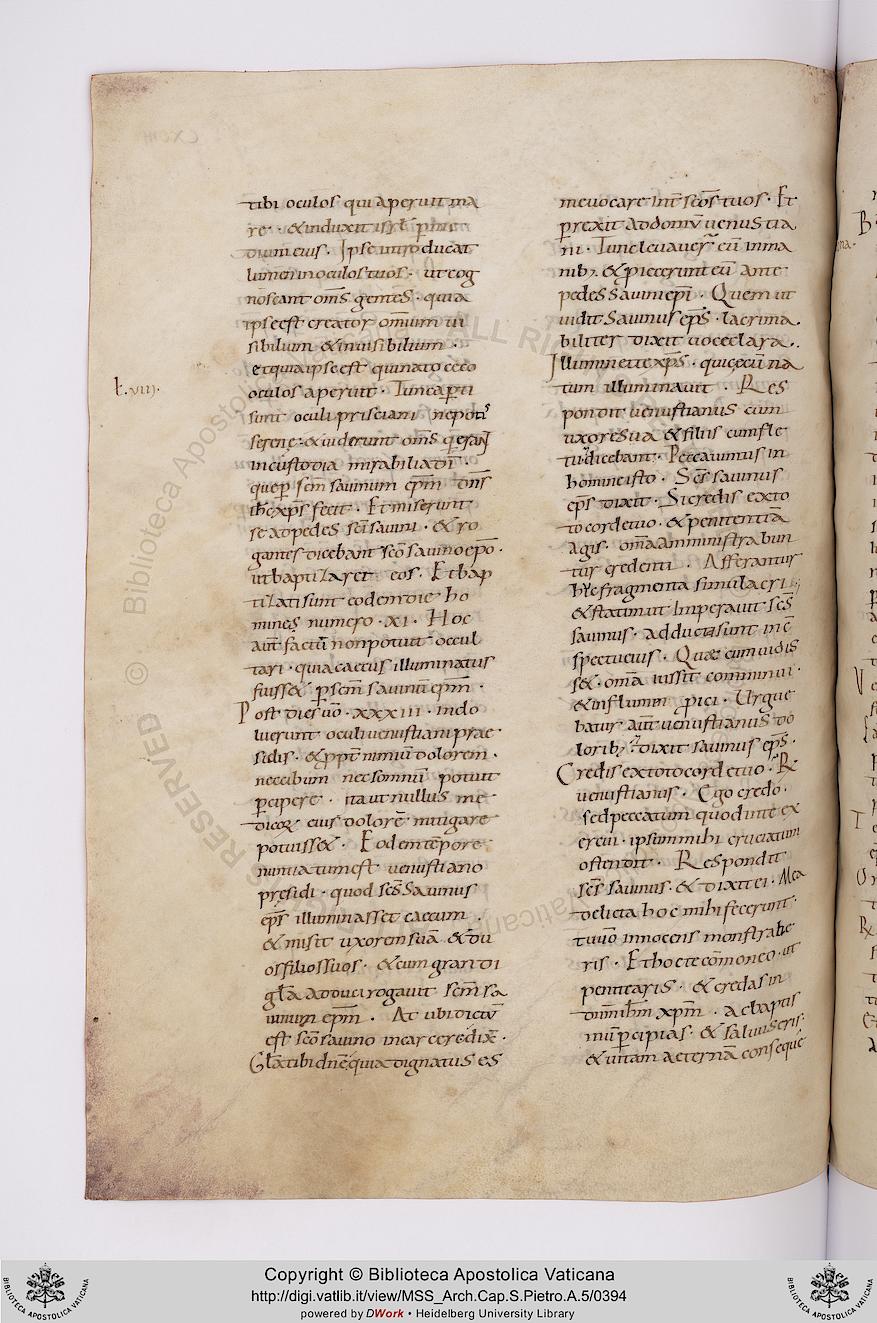 tibi oculos qui aperuit ma
re · & induxit isrł p me
dium eius · Ipse introducat
lumen in oculos tuos · ut cog
noscant om̄s gentes · quia
ipse est creator omnium ui
sibilium & inuisibilium ·
et quia ipse est qui nato ceco
oculos aperuit · Tunc aperti
ł. viii.
sunt oculi prisciani nepotis
serene · & uiderunt om̄s q̄ erant
in custodia mirabilia dī ·
que p sc̄m sauinum ep̄m dn̄s
ih̄c xp̄s fecit · Et miserunt
se ad pedes sc̄i sauini · & ro
gantes dicebant sc̄o sauino ep̄o ·
ut baptizaret eos · Et bap
tizati sunt eodem die ho
mines numero · XI · Hoc
aut̄ factū non potuit occul
tari · quia caecus illuminatus
fuiss& · p sc̄m sauinū ep̄m ·
Post dies uō · XXXIII · indo
luerunt oculi uenustiani prae
sidis · & ppt̄ nimiū dolorem ·
nec cibum nec somnū potuit
pcipere · ita ut nullus me
dicoꝝ eius dolorē mitigare
potuiss& · Eodem tēpore
nuntiatum est uenustiano
presidi · quod sc̄s Sauinus
ep̄s illuminasset caecum ·
& misit uxorem suā & du
os filios suos · & cum grandi
gl̄a adduci rogauit sc̄m sa
uinum ep̄m · At ubi dictū
est sc̄o sauino in carcere dix& ·
Gl̄a tibi dn̄e quia dignatus es
me uocare int̄ sc̄os tuos · Et
prexit ad domū uenustia
ni · Tunc leuauer̄ eū in ma
nib; · & piecerunt eū ante
pedes Sauini ep̄i · Quem ut
uidit Sauinus ep̄s · lacrima
biliter dixit uoce clara ·
Illuminet te xp̄s · qui cecū na
tum illuminauit · Res
pondit uenustianus cum
uxore sua & filiis cum fle
tu dicebant · Peccauimus in
homine isto · Sc̄s sauinus
ep̄s dixit · Si credis ex to
to corde tuo · & penitentiā
agis · om̄a amministrabun
tur credenti · Afferantur
huc fragmenta simulacri ·
& statim ut imperauit sc̄s
sauinus · adducta sunt in c̄
spectu eius · Quae cum uidis
s& · om̄a iussit comminui ·
& in flumin pici · Urgue
batur aut̄ uenustianus do
lorib; & dixit sauinus ep̄s ·
Credis ex toto corde tuo · R̄
uenustianus · Ego credo ·
sed peccatum quod in te ex
ercui · ipsum mihi cruciatum
ostendit · Respondit
sc̄s sauinus · & dixit ei · Mea
delicta hoc mihi fecerunt ·
tu uō innocens monstrabe
ris · Et hoc te cōmoneo · ut
penitearis · & credas in
dn̄m ih̄m xp̄m · ac baptis
mū pcipias · & saluus eris ·
& uitam aeternā conseque
Copyright © Biblioteca Apostolica Vaticana
http://digi.vatlib.it/view/MSS_Arch.Cap.S.Pietro.A.5/0394
powered by DWork • Heidelberg University Library